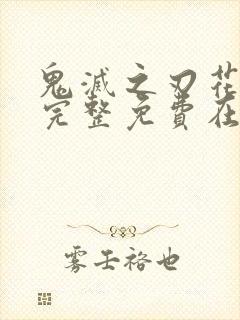 鬼滅之刃花
完整免費在
雾壬袼也